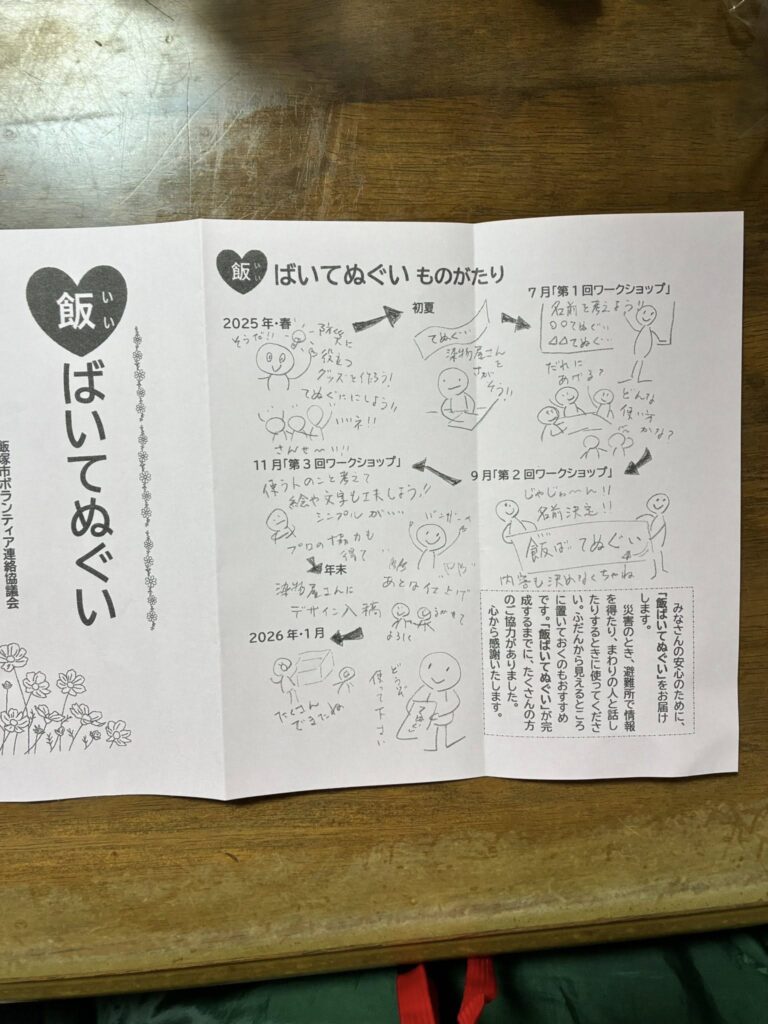 飯
いい
ばいてぬぐい
飯塚市ボランティア連絡協議会
飯
いい
ばいてぬぐい ものがたり
2025年・春
そうだ!!
防災に
役立つ
グッズを作ろう!
てぬぐいにしよう!!
いいネ!!
さんせ〜い!!
初夏
てぬぐい
染物屋さん
を
さがそう!!
7月「第1回ワークショップ」
名前を考えよう!!
○○てぬぐい
△△てぬぐい
だれに
あげる?
どんな
使い方
かな?
9月「第2回ワークショップ」
じゃじゃ〜ん!!
名前決定!!
飯ばてぬぐい
い
内容も決めなくちゃね
11月「第3回ワークショップ」
使う人のこと考えて
絵や文字も工夫しよう!!
シンプルがいい
プロの協力も
得て
年末
染物屋さんに
デザイン入稿
あとな仕上げ
ように
2026年・1月
たくさん
できたね
どうぞ
使って下さい
てぬぐい
みなさんの安心のために、
「飯ばいてぬぐい」をお届け
します。
災害のとき、避難所で情報
を得たり、まわりの人と話し
たりするときに使ってくださ
い。ふだんから見えるところ
に置いておくのもおすすめ
です。「飯ばいてぬぐい」が完
成するまでに、たくさんの方
のご協力がありました。
心から感謝いたします。